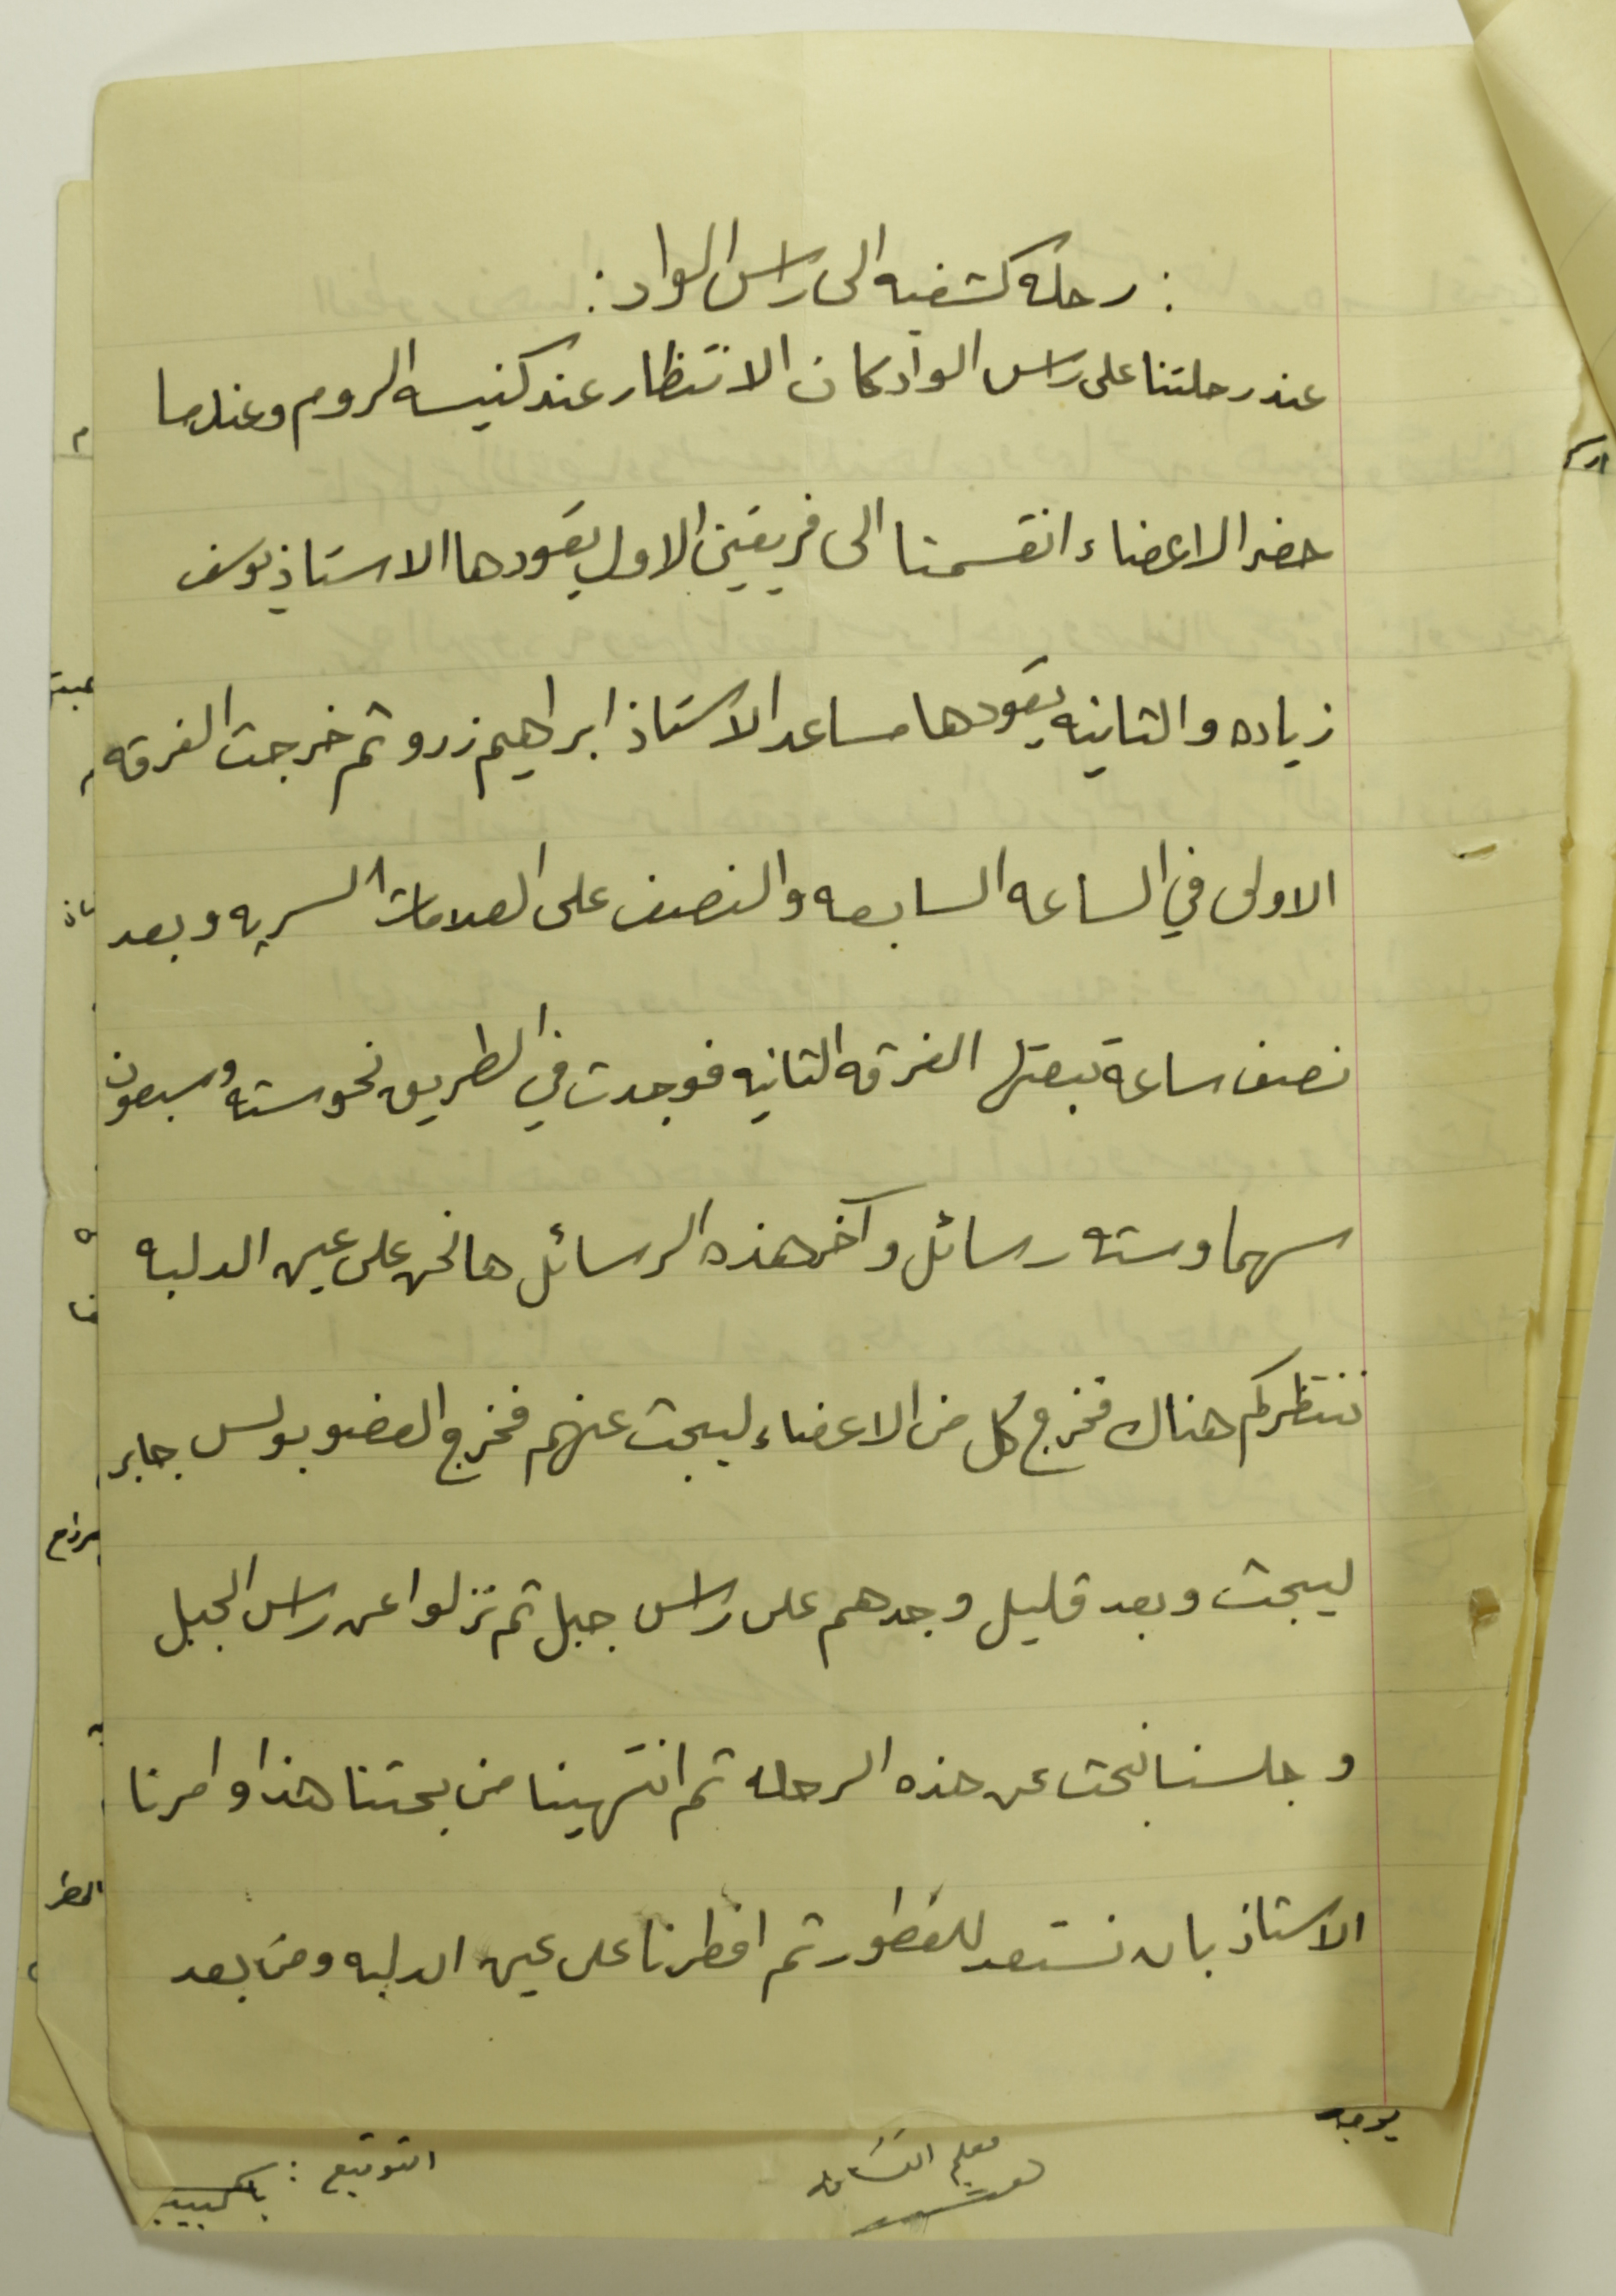 : رحلة كشفيه الى راس الواد :
عند رحلتنا على راس الواد كان الانتظار عند كنيسه الروم وعندما
حضر الاعضاء انقسمنا الى فريقين الاول يقودها الاستاذ يوسف
زياده والثانيه يقودها مساعد الاستاذ ابراهيم زرو ثم خرجت الفرقه
الاولى في الساعه السابعه والنصف على العلامات السريه وبعد
نصف ساعة تبعتها الفرقه الثانيه فوجدت في الطريق نحو سته وسبعون
سهما وسته رسائل وآخر هذه الرسائل ها نحن على عين الدلبه
ننتظركم هناك فخرج كل من الاعضاء ليبحث عنهم فخرج العضو بولس جابر
ليبحث وبعد قليل وجدهم على راس جبل ثم نزلوا عن راس الجبل
وجلسنا نبحث عن هذه الرحله ثم انتهينا من بحثنا هذا وامرنا
الاستاذ بان نستعد للفطور ثم افطرنا على عين الدلبه ومن بعد
يوجد
معلم
التوقيع :